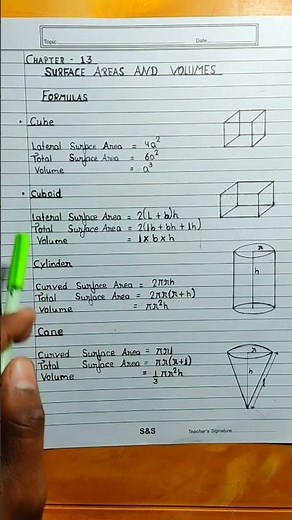 Topic
Date
CHAPTER - 13
SURFACE AREAS AND VOLUMES
FORMULAS
• Cube
Lateral Surface Area = 4a²
Total Surface Area = 6a²
Volume = a³
• Cuboid
Lateral Surface Area = 2(l + b)h
Total Surface Area = 2(lb + bh + lh)
Volume = l x b x h
Cylinder
Curved Surface Area = 2πrh
Total Surface Area = 2πr(r+h)
Volume = πr²h
r
h
Cone
Curved Surface Area = πrl
Total Surface Area = πr(r+l)
Volume = 1/3 πr²h
r
h
l
S&S
Teacher's Signature